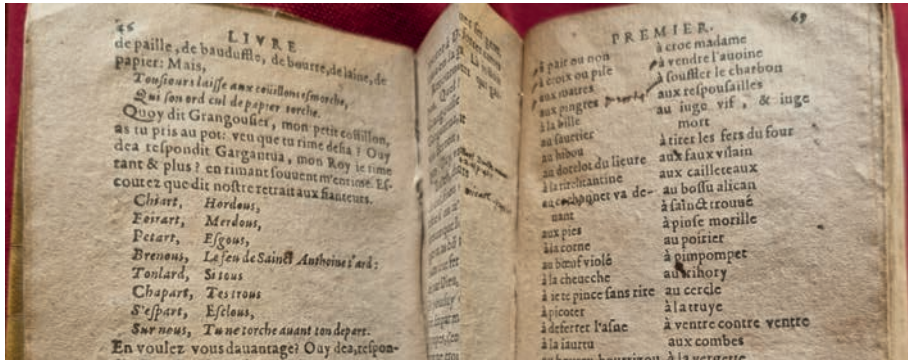 46
LIVRE
de paille, de bauduffle, de bourre, de laine, de
papier: Mais,
Tousiours laisse aux couillons esmorche,
Qui son ord cul de papier torche.
Quoy dit Grangousier, mon petit coüillon,
as tu pris au pot: veu que tu rime desia? Ouy
dea respondit Gargantua, mon Roy ie rime
tant & plus? en rimant souuent m'enrime. Es-
coutez que dit nostre retrait aux fianteurs.
Chiart, Hordous,
Foirart, Merdous,
Petart, Esgous,
Brenous, Le feu de Sainct Anthoine t'ard:
Tonlard, Si tous
Chapart, Tes trous
S'espart, Esclous,
Sur nous, Tu ne torche auant ton depart.
En voulez vous dauantage? Ouy dea, respon-
PREMIER.
69
à pair ou non
à croix ou pile
aux matres
aux pingres
à la bille
au sauetier
au hibou
au dorelot du lieure
à la tirelitantine
au cochonnet va de-
uant
aux pies
à la corne
au bœuf violé
à la cheueche
à ie te pince sans rire
à picoter
à deferrer l'asne
à la iautru
à croc madame
à vendre l'auoine
à souffler le charbon
aux respousailles
au iuge vif, & iuge
mort
à tirer les fers du four
aux faux vilain
aux cailleteaux
au bossu alican
à sainct trouué
à pinse morille
au poirier
à pimpompet
au trihory
au cercle
à la truye
à ventre contre ventre
aux combes
à la vergette